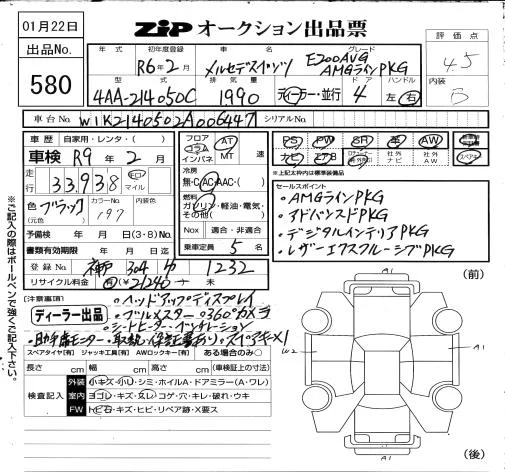 01月22日
ZIP オークション出品票
出品No.
580
年式
初年度登録
R6年2月
車名
メルセデスベンツ
グレード
E200AVG
AMGラインPKG
評価点
4.5
内装
B
型式
4AA-214050C
排気量
1990
ディーラー・並行
ドア
4
ハンドル
左・右
車台No.
W1K2140502A006447
シリアルNo.
車歴
自家用・レンタ・( )
車検 R9年2月
走行
33,938
km
マイル
色
(元色)
ブラック
カラーNo.
197
内装色
予備検 年 月 日(3・8)No.
書類有効期限 年 月 日
登録No.
神戸 304 1232
リサイクル料金 有(¥21240) 未
フロア
コラム
インパネ
AT
MT
速
冷房
無・C・AC・AAC・( )
燃料
ガソリン・軽油・電気・その他( )
Nox
適合・非適合
乗車定員 5 名
PS
PW
SR
革
AW
ナビ
エアB
社外ナビ
社外AW
スペアキー
※上記太枠内は標準装備品
セールスポイント
・AMGラインPKG
・アドバンスドPKG
・デジタルインテリアPKG
・レザーエクスクルーシブPKG
※ご記入の際はボールペンで強くご記入下さい。
【注意事項】
ディーラー出品
・ヘッドアップディスプレイ
・ブルメスター・360°カメラ
・シートヒーター・ベンチレーション
・助手席モニター・取説・保証書あり・スペアキー×1
スペアタイヤ[有] ジャッキ工具[有] AWロックキー[有] ある場合のみ○
長さ cm 幅 cm 高さ cm (車検証上の寸法)
検査記入
外装
小キズ・小U・シミ・ホイルA・ドアミラー(A・ワレ)
室内
ヨゴレ・キズ・スレ・コゲ・穴・キレ・破れ・ウキ
FW
トビ石・キズ・ヒビ・リペア跡・X要ス
(前)
A1
W2
A1
A1
(後)